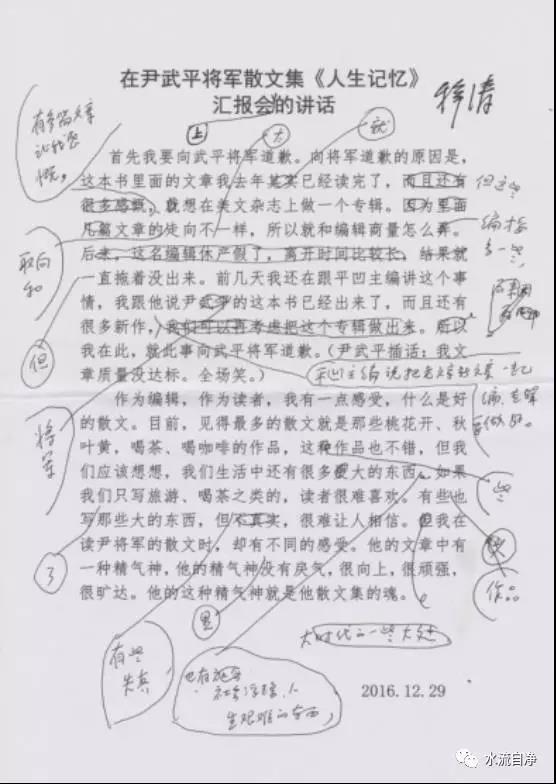 在尹武平将军散文集《人生记忆》
汇报会的讲话
穆涛
上
大
就
有多篇文章
首先我要向武平将军道歉。向将军道歉的原因是，
这本书里面的文章我去年其实已经读完了，而且还有
但这些
很多感慨，就想在美文杂志上做一个专辑。因为里面
几篇文章的走向不一样，所以就和编辑商量怎么弄。
编辑
取向
和
后来，这名编辑休产假了，离开时间比较长，结果就
一直拖着没出来。前几天我还在跟平凹主编讲这个事
情，我跟他说尹武平的这本书已经出来了，而且还有
很多新作，我们可以再考虑把这个专辑做出来。所以
但
我在此，就此事向武平将军道歉。（尹武平插话：我文
章质量没达标。全场笑。）
平凹主编说把老文章新文章一起
编
做好。
作为编辑，作为读者，我有一点感受，什么是好
的散文。目前，见得最多的散文就是那些桃花开、秋
将军
叶黄，喝茶、喝咖啡的作品，这种作品也不错，但我
们应该想想，我们生活中还有很多更大的东西。如果
我们只写旅游、喝茶之类的，读者很难喜欢。有些也
些
写那些大的东西，但不真实，很难让人相信。但我在
读尹将军的散文时，却有不同的感受。他的文章中有
了
一种精气神，他的精气神没有戾气，很向上，很顽强，
很旷达。他的这种精气神就是他散文集的魂。
作品
里
大时代的一些大处
有些
失真
社会
人
生艰难的东西
2016.12.29
水流自净